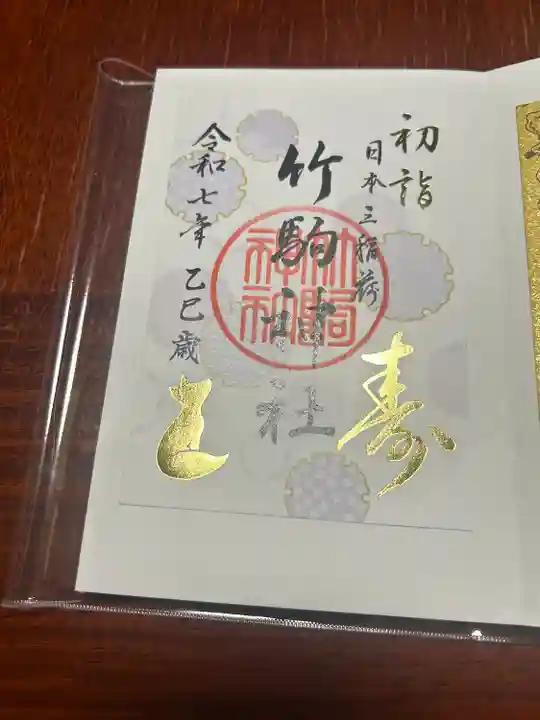 初詣
日本三稲荷
寿
竹駒神社
竹駒神社
令和七年 乙巳歳